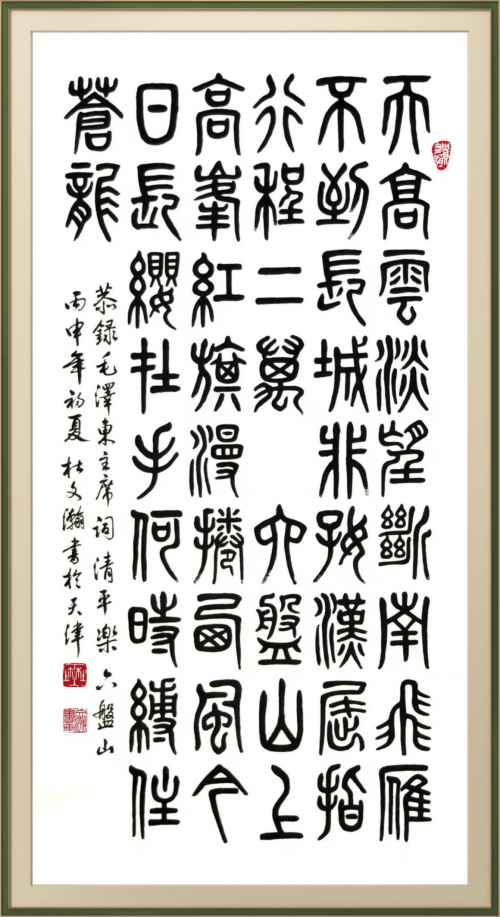 天高雲淡望斷南飛雁
不到長城非好漢屈指
行程二萬 六盤山上
高峯紅旗漫捲西風今
日長纓在手何時縛住
蒼龍
恭録毛澤東主席詞清平樂六盤山
丙申年初夏杜文瀚書於天津